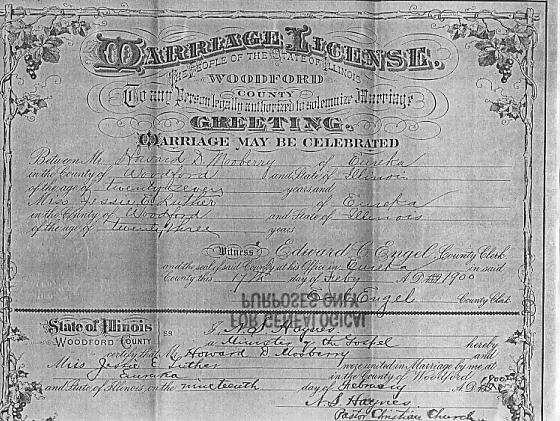 Marriage License.
The People of the State of Illinois
Woodford
County
To any Person legally authorized to solemnize Marriage
GREETING.
MARRIAGE MAY BE CELEBRATED
Between Mr. Howard D Mooberry of Eureka
in the County of Woodford and State of Illinois
of the age of twenty seven years and
Miss Jessie E. Luther of Eureka
in the County of Woodford and State of Illinois
of the age of twenty three years
Witness Edward C Engel County Clerk
and the seal of said County at his Office in Eureka in said
County this 17th day of Feby A.D. 1900
E C Engel County Clerk
FOR GENEALOGICAL
PURPOSES ONLY
State of Illinois
WOODFORD COUNTY ss
I A S Haynes
a Minister of the Gospel hereby
certify that Mr Howard D Mooberry and
Miss Jessie E Luther were united in Marriage by me at
Eureka in the County of Woodford
and State of Illinois, on the nineteenth day of February A.D. 1900
A S Haynes
Pastor Christian Church